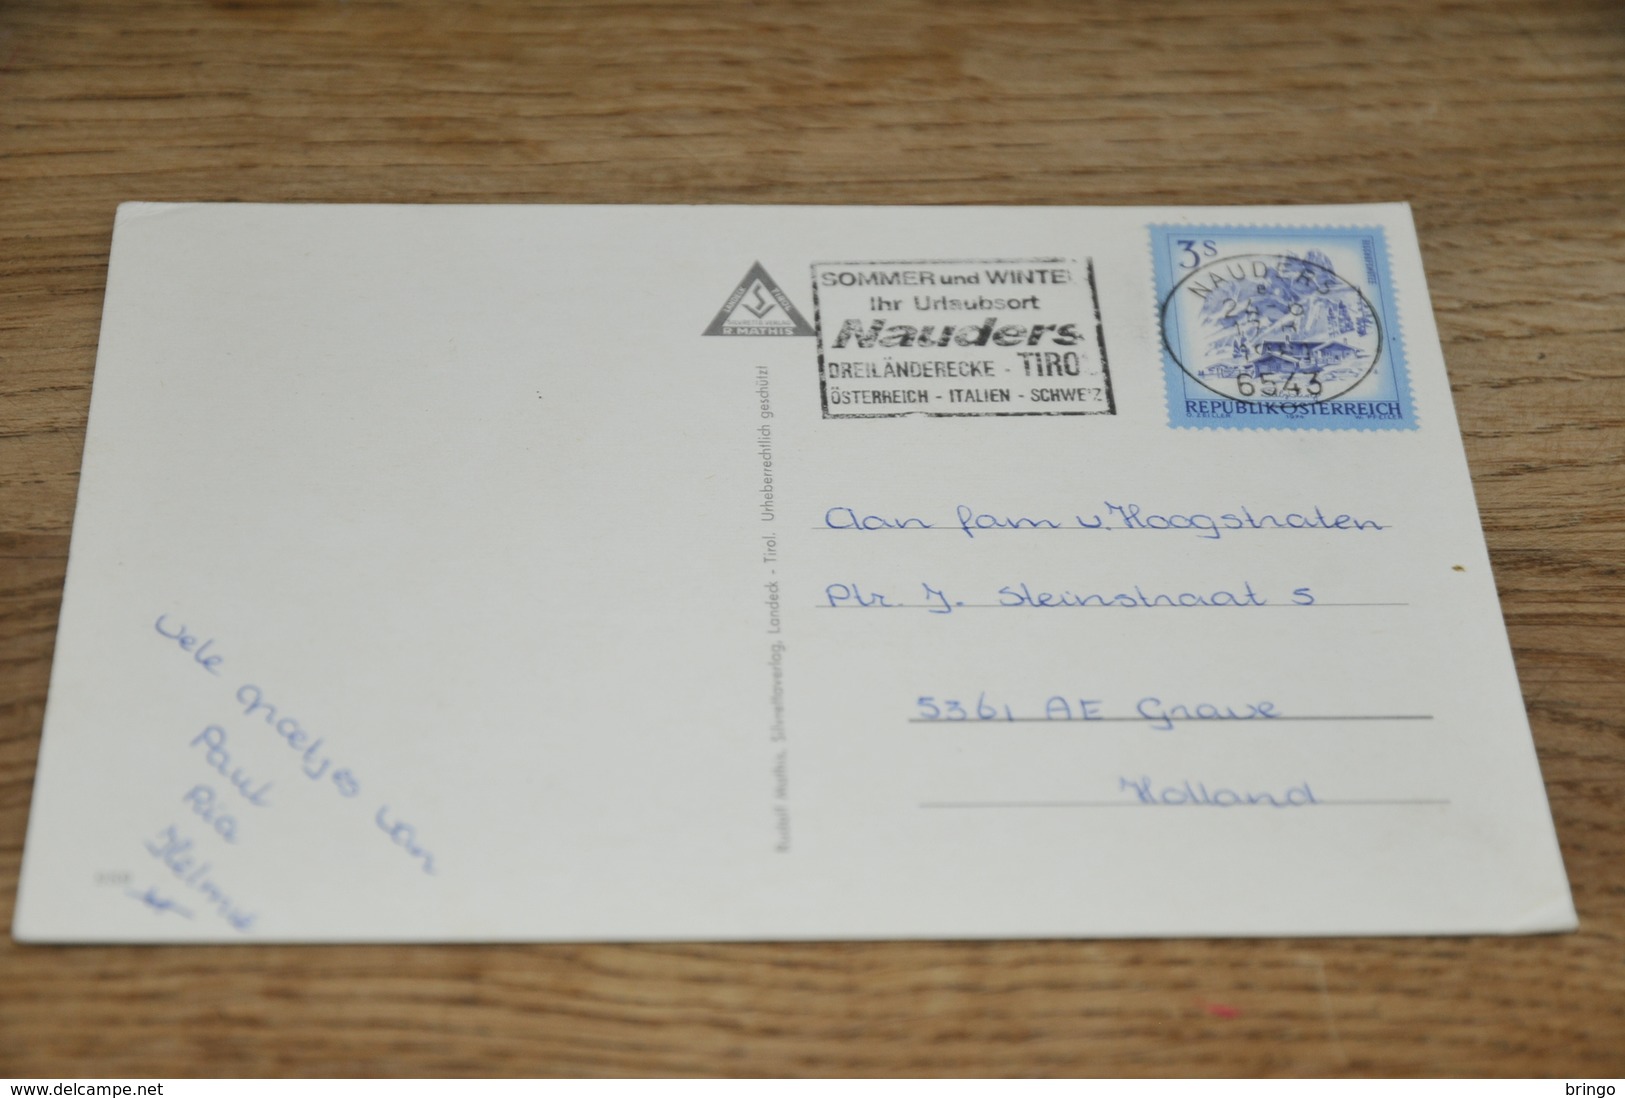 SOMMER und WINTE
Ihr Urlaubsort
Nauders
DREILÄNDERECKE - TIRO
ÖSTERREICH - ITALIEN - SCHWEIZ
R. MATHIS
3S
NAUDERS
6543
REPUBLIK ÖSTERREICH
Rudolf Mathis, Silvrettaverlag, Landeck - Tirol. Urheberrechtlich geschützt!
Aan fam v. Hoogstraten
Ptr. J. Steinstraat 5
5361 AE Grave
Holland
vele groetjes van
Paul
Ria
Helma
delcampe.net
bringo